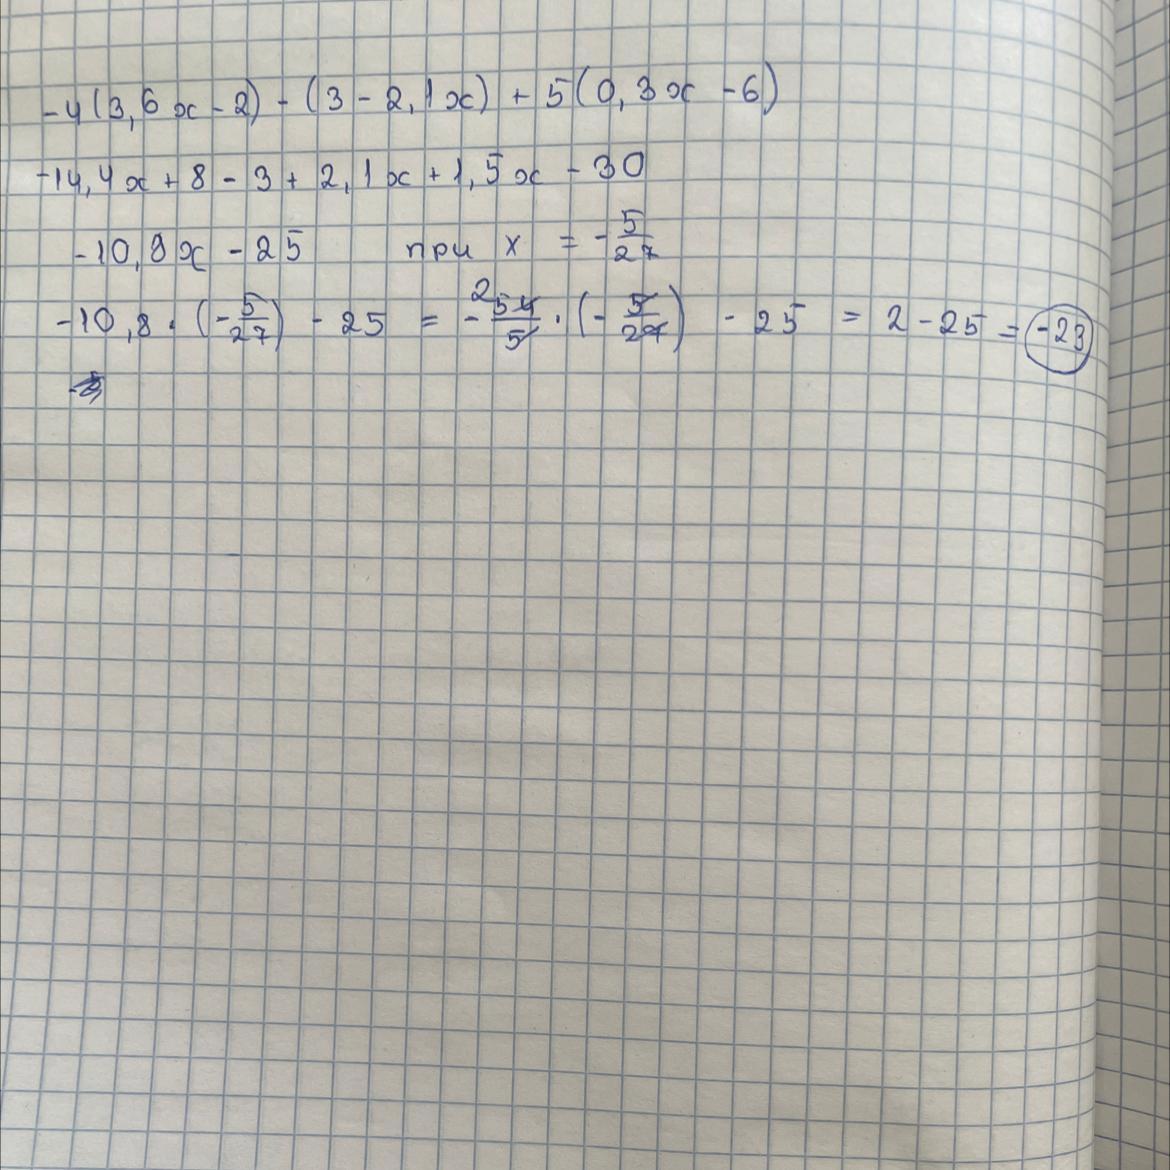 -4(3,6x-2)-(3-2,1x)+5(0,3x-6)
-14,4x+8-3+2,1x+1,5x-30
-10,8x-25 при x = -5/27
-10,8·(-5/27)-25 = -54/5·(-5/27)-25 = 2-25 = -23